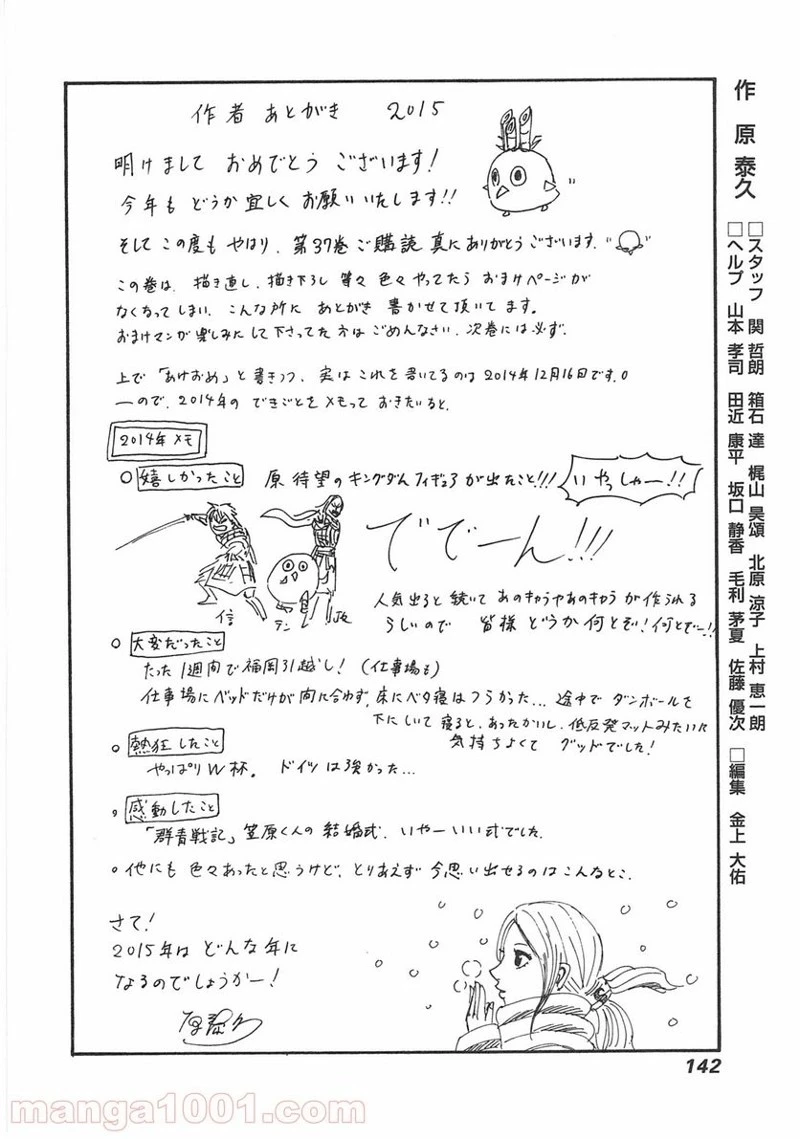 作者 あとがき 2015
明けまして おめでとう ございます!
今年も どうか 宜しく お願いいたします!!
そして この度も やはり、第37巻 ご購読 真に ありがとう ございます。
この巻は、描き直し、描き下ろし 等々 色々 やってたら おまけページが
なくなってしまい、こんな所に あとがき 書かせて頂いてます。
おまけマンガ楽しみにして下さってた方はごめんなさい。次巻には必ず。
上で「あけおめ」と書きつつ、実は これを書いてるのは 2014年12月16日です。
ーので、2014年の できごとを メモって おきたいると、
2014年メモ
○ 嬉しかったこと 原 待望の キングダムフィギュア が出たこと!!! いやっしゃー!!
ででーん!!!
信
テン
人気出ると 続いて あのキャラやあのキャラ が 作られる
らしいので 皆様 どうか何とぞ!何とぞー!!
○ 大変だったこと
たった1週間で福岡引越し!(仕事場も)
仕事場にベッドだけが間に合わず、床にベタ寝はつらかった… 途中で ダンボールを
下にしいて 寝ると、あったかいし、低反発マットみたいに
気持ちよくて グッドでした!
○ 熱狂したこと
やっぱりW杯。 ドイツは強かった…
○ 感動したこと
「群青戦記」笠原くんの 結婚式。いやー いい式でした。
○ 他にも 色々あったと思うけど、とりあえず 今思い出せるのはこんなとこ。
さて!
2015年は どんな年に
なるのでしょうかー!
原泰久
作 原 泰久
□スタッフ 関 哲朗 箱石 達 梶山 昊頌 北原 涼子 上村 恵一朗
□ヘルプ 山本 孝司 田近 康平 坂口 静香 毛利 茅夏 佐藤 優次 □編集 金上 大佑
142
manga1001.com